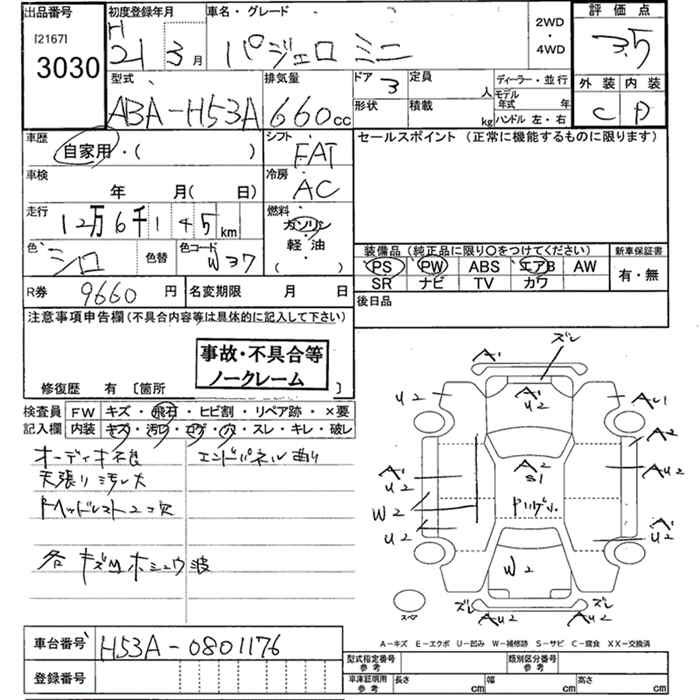 出品番号 初度登録年月 車名・グレード 2WD ・ 4WD 評価点
[21671]
3030
H 21 3月 パジェロ ミニ 3.5
型式 排気量 ドア 3 定員 人 ディーラー・並行 外装 内装
ABA-H53A 660cc 形状 積載 kg モデル年式 年 C D
ハンドル 左・右
車歴 自家用・( ) シフト FAT セールスポイント (正常に機能するものに限ります)
車検 年 月( 日) 冷房 AC
走行 12万6千145km 燃料 ガソリン
色 シロ 色替 色コード W37 軽油 ( )
装備品 (純正品に限り○をつけてください) 新車保証書
PS PW ABS エアB AW 有・無
SR ナビ TV カワ
R券 9660円 名変期限 月 日 後日品
注意事項申告欄(不具合内容等は具体的に記入して下さい)
事故・不具合等
ノークレーム
修復歴 有 〔箇所
検査員 FW キズ・飛石・ヒビ割・リペア跡・×要
記入欄 内装 キズ・汚レ・コゲ・穴・スレ・キレ・破レ
オーディオ不良 エンドパネル曲り
天張り汚レ大
ヘッドレスト2コ欠
各キズ凹ホシュウ波
A1 ズレ
U2 U2 AU1
A2
A1 A2 AU2
U2 S1
W2
U2 A1
U2
W2
スペア ズレ AU2 AU2 ズレ
A-キズ E-エクボ U-凹み W-補修跡 S-サビ C-腐食 XX-交換済
車台番号 H53A-0801176
型式指定番号 参考 類別区分番号 参考
登録番号 車庫証明用 参考 長さ cm 幅 cm 高さ cm